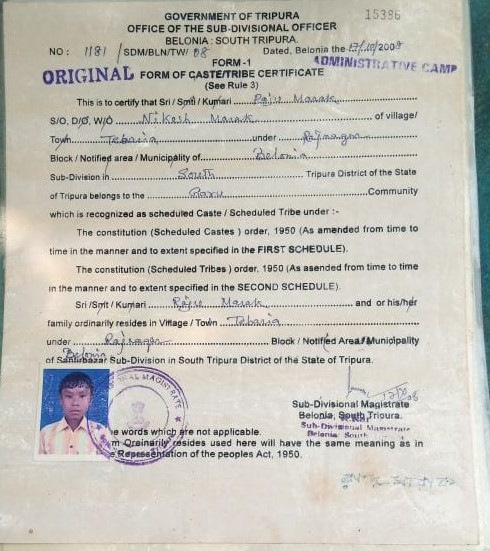 GOVERNMENT OF TRIPURA 15396
OFFICE OF THE SUB-DIVISIONAL OFFICER
BELONIA : SOUTH TRIPURA.
NO : 1181 /SDM/BLN/TW/ 08 Dated, Belonia the 17/10/2008
FORM-1 ADMINISTRATIVE CAMP
ORIGINAL FORM OF CASTE/TRIBE CERTIFICATE
(See Rule 3)
This is to certify that Sri / Smti / Kumari Rajib Marak
S/O, D/O, W/O Nikesh Marak of village/
Town Tebaria under Rajnagar
Block / Notified area / Municipality of Belonia
Sub-Division in South Tripura District of the State
of Tripura belongs to the Garu Community
which is recognized as scheduled Caste / Scheduled Tribe under :-
The constitution (Scheduled Castes ) order, 1950 (As amended from time to
time in the manner and to extent specified in the FIRST SCHEDULE).
The constitution (Scheduled Tribes ) order, 1950 (As asended from time to time
in the manner and to extent specified in the SECOND SCHEDULE).
Sri / Smt / Kumari Marak and or his/her
family ordinarily resides in Village / Town Tebaria
under Rajnagar Block / Notified Area/Municipality
Belonia
of Santirbazar Sub-Division in South Tripura District of the State of Tripura.
Sub-Divisional Magistrate
Belonia, South Tripura.
Sub-Divisional Magistrate
Belonia, South
MAGISTRATE
he words which are not applicable.
m Oreinarily resides used here will have the same meaning as in
e Representation of the peoples Act, 1950.